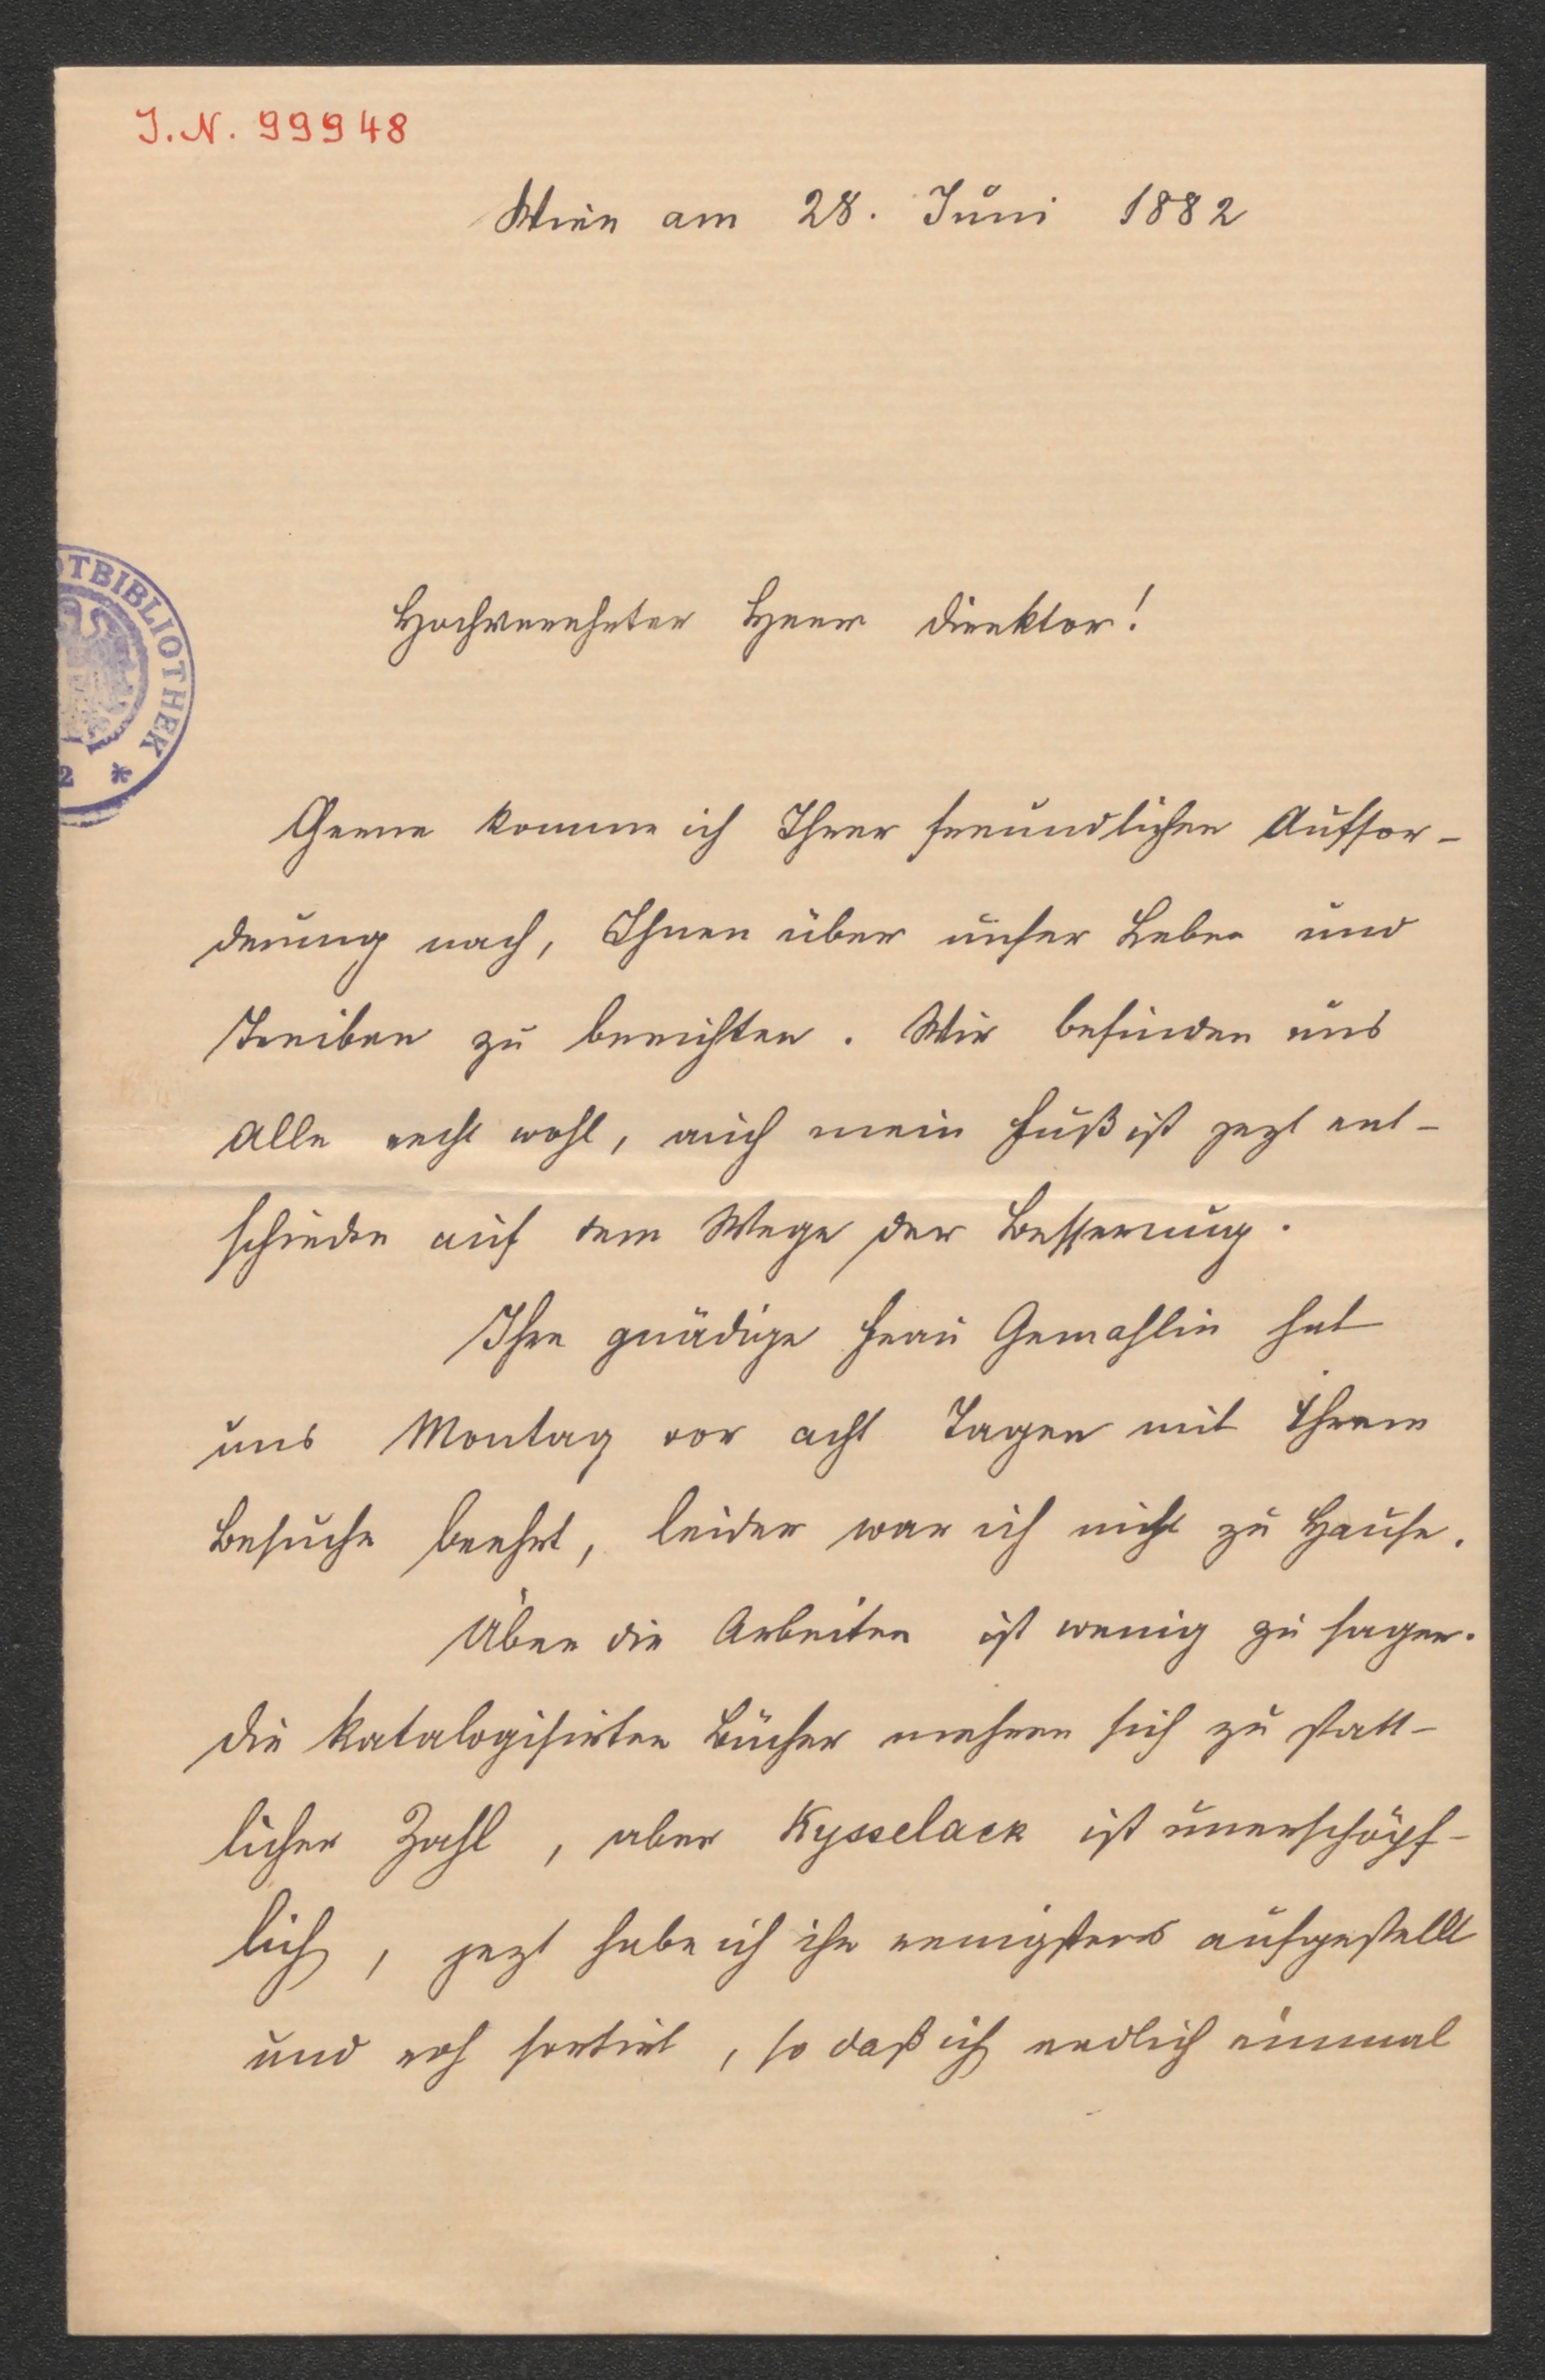 J.N. 99948
Wien am 28. Juni 1882
TBIBLIOTHEK
2 *
Hochverehrter Herr Direktor!
Gerne komme ich Ihrer freundlichen Auffor-
derung nach, Ihnen über unser Leben und
Treiben zu berichten. Wir befinden uns
alle recht wohl, auch mein Fuß ist jezt ent-
schieden auf dem Wege der Besserung.
Ihre gnädige Frau Gemahlin hat
uns Montag vor acht Tagen mit Ihrem
Besuche beehrt, leider war ich nicht zu Hause.
Über die Arbeiten ist wenig zu sagen.
Die katalogisirten Bücher mehren sich zu statt-
licher Zahl, aber Kysselack ist unerschöpf-
lich, jezt habe ich ihn wenigstens aufgestellt
und roh sortirt, so daß ich endlich einmal